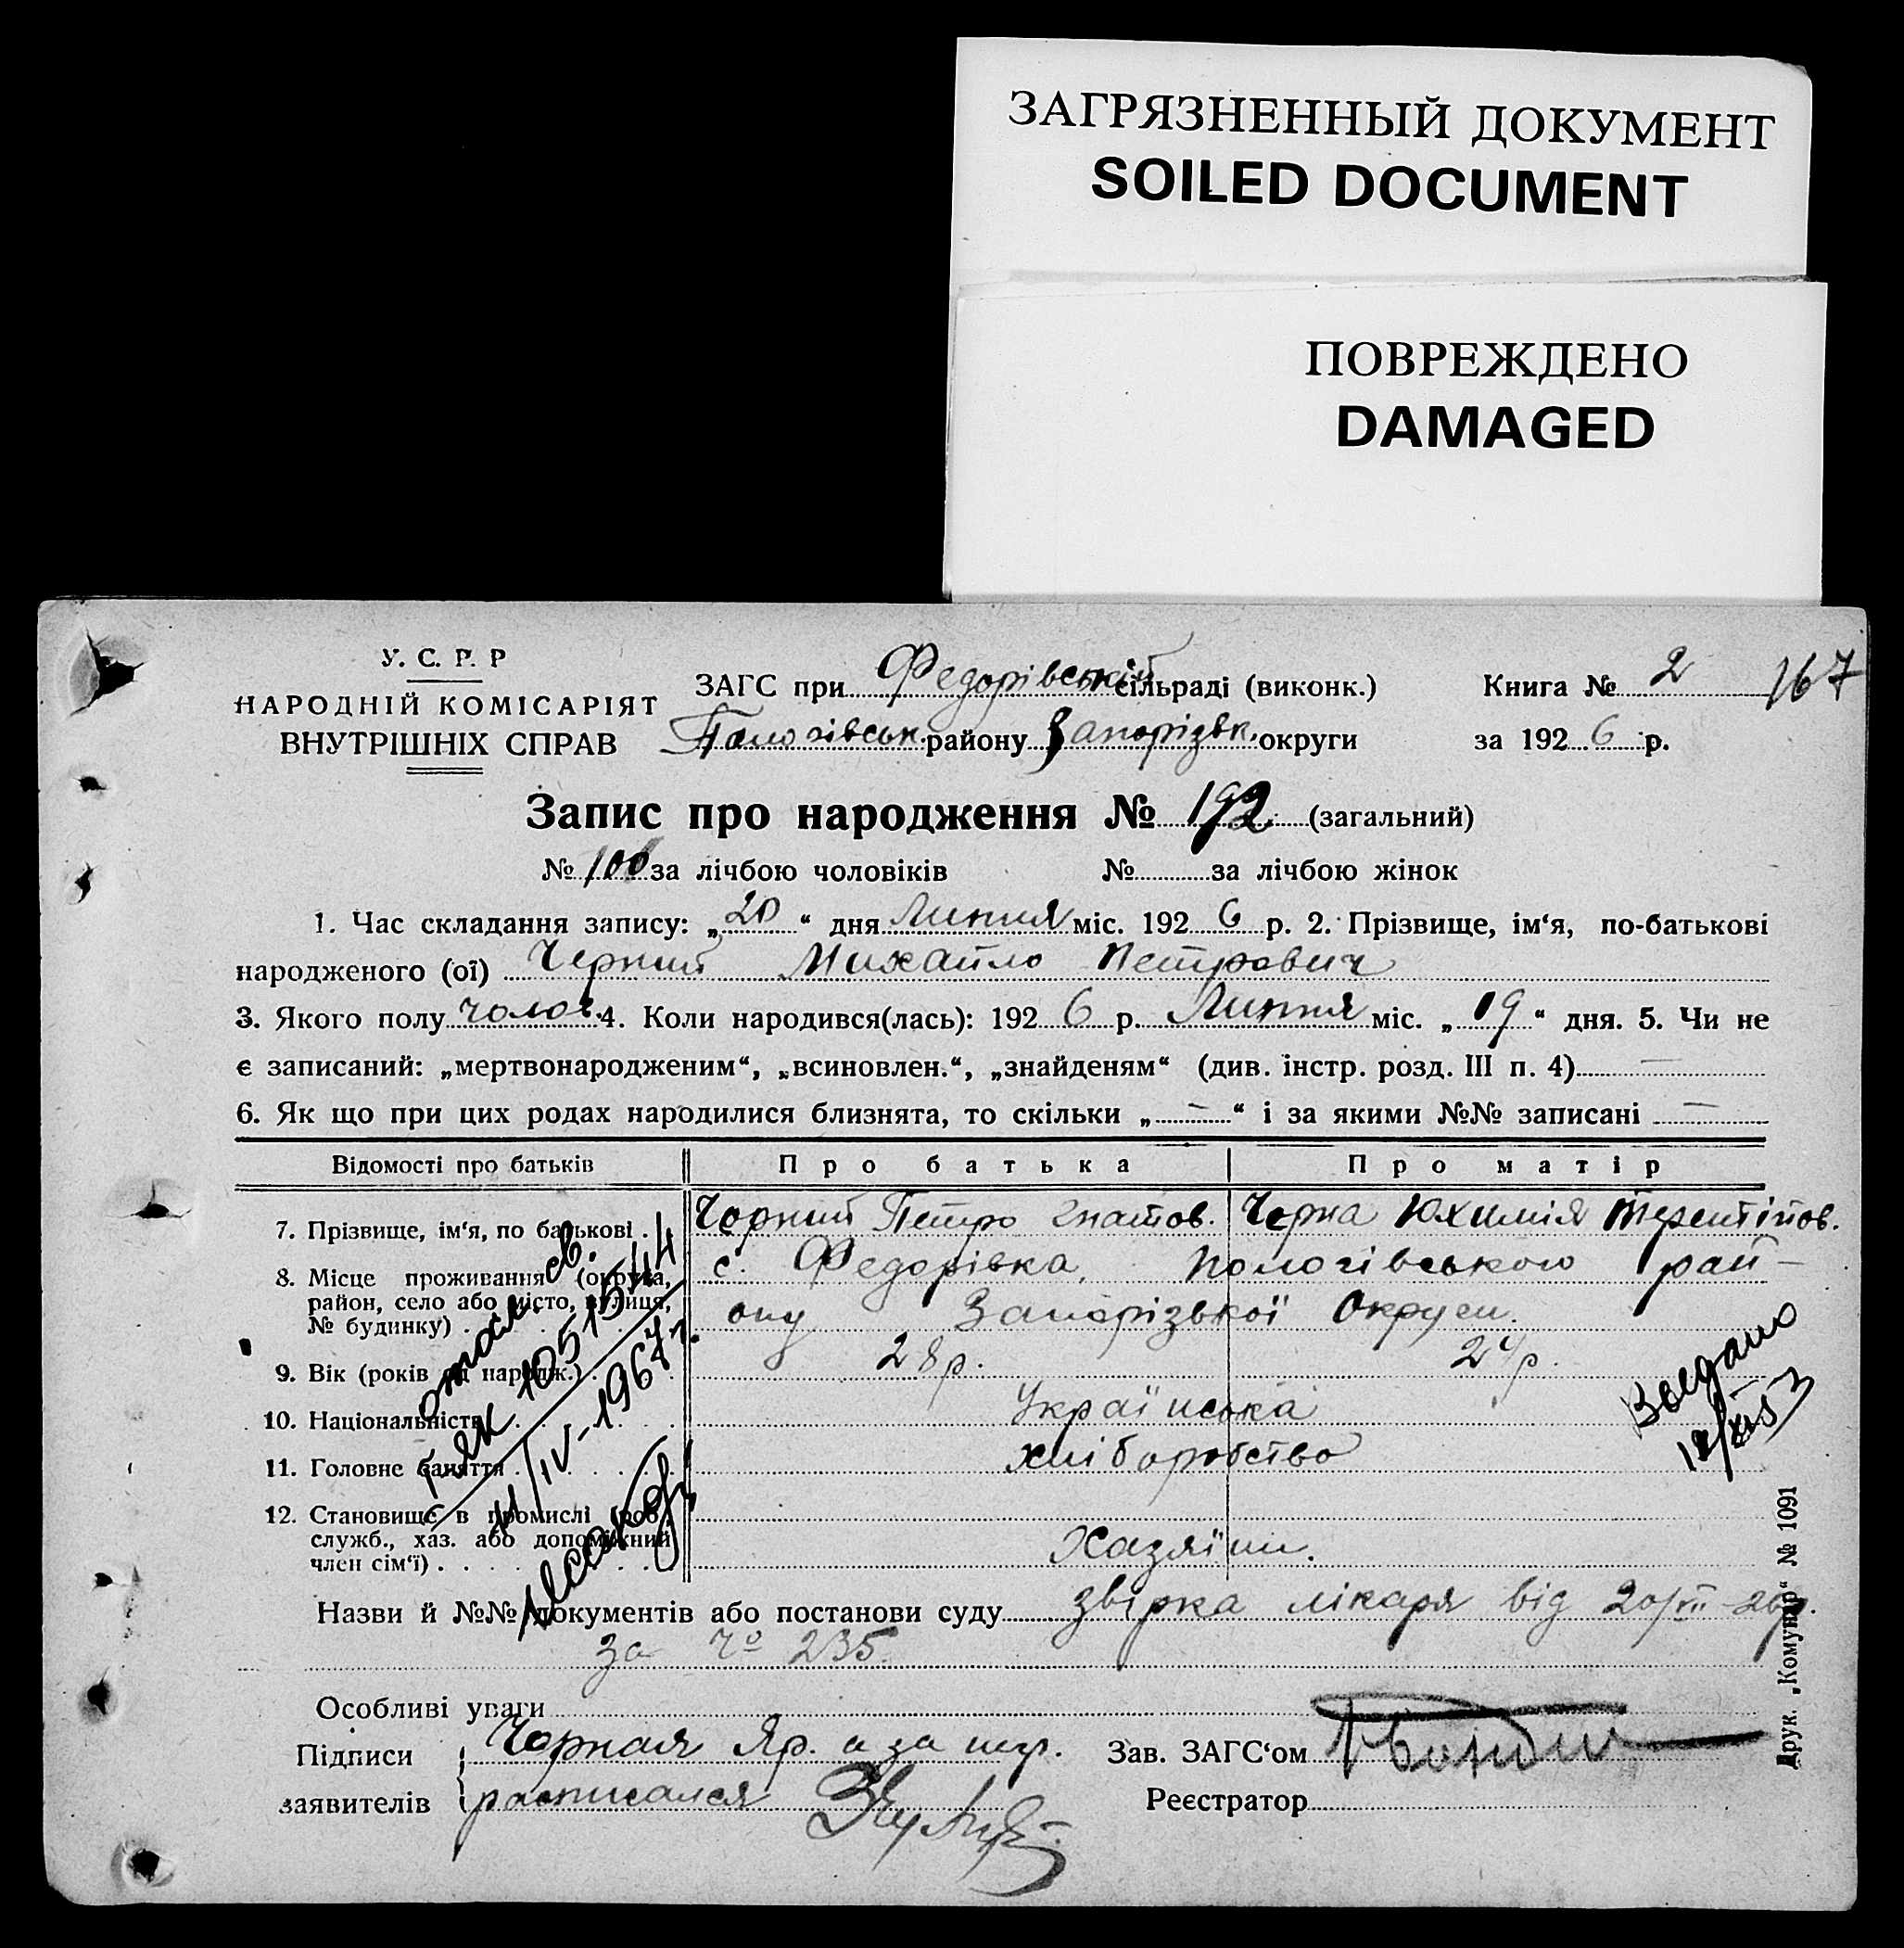 ЗАГРЯЗНЕННЫЙ ДОКУМЕНТ
SOILED DOCUMENT
ПОВРЕЖДЕНО
DAMAGED
У. С. Р. Р
НАРОДНІЙ КОМІСАРІЯТ
ВНУТРІШНІХ СПРАВ
ЗАГС при Федорівській сільраді (виконк.)
Пологівськ. району Запорізьк. округи
Книга № 2
167
за 1926 р.
Запис про народження № 192 (загальний)
№ 101 за лічбою чоловіків № за лічбою жінок
1. Час складання запису: „20“ дня Липня міс. 1926 р. 2. Прізвище, ім‘я, по-батькові
народженого (ої) Черний Михайло Петрович
3. Якого полу чолов. 4. Коли народився(лась): 1926 р. Липня міс. „19“ дня. 5. Чи не
є записаний: „мертвонародженим“, „всиновлен.“, „знайденям“ (див. інстр. розд. III п. 4) —
6. Як що при цих родах народилися близнята, то скільки „—“ і за якими №№ записані —
Відомості про батьків
Про батька
Про матір
7. Прізвище, ім‘я, по батькові
Чорний Петро Гнатов.
Черна Юхимія Терентіїов.
8. Місце проживання (округа,
район, село або місто, вулиця,
№ будинку)
с. Федорівка, Пологівського рай-
ону Запорізької Округи.
9. Вік (років від народж.)
28 р.
24 р.
10. Національність
Українська
11. Головне заняття
хліборобство
12. Становище в промислі (роб.,
служб., хаз. або допоміжний
член сім‘ї)
Хазяїни.
Назви й №№ документів або постанови суду звірка лікаря від 20/VII-26р.
за № 235.
Особливі уваги
Підписи
заявителів
Чорная Яр. а за
расписался
Зав. ЗАГС‘ом
Реєстратор
св.
1051544
11/IV-1967 г.
Выдано
Друк. „Комунар“ № 1091